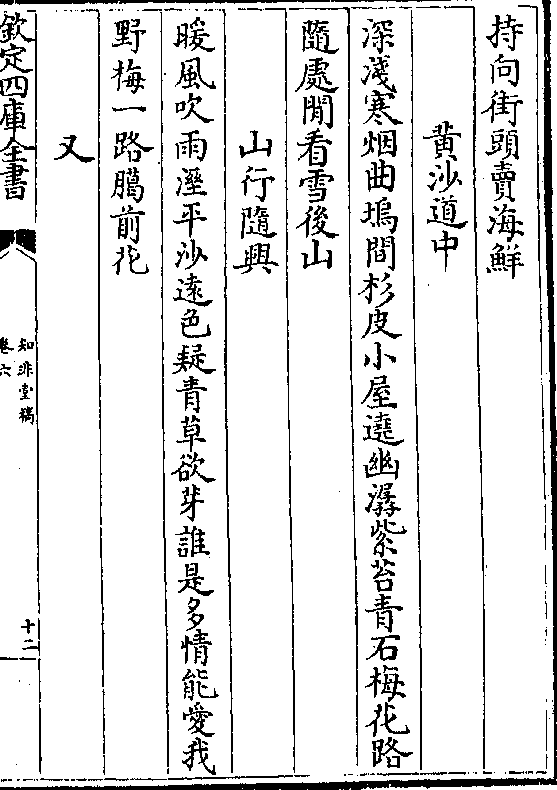 持向街頭賣海鮮
黄沙道中
深淺寒烟曲塢間杉皮小屋遶幽潺紫苔青石梅花路
隨處閒看雪後山
山行隨興
暖風吹雨溼平沙遠色疑青草欲芽誰是多情能愛我
野梅一路臈前花
又
欽定四庫全書
知非堂稿
卷六
十二